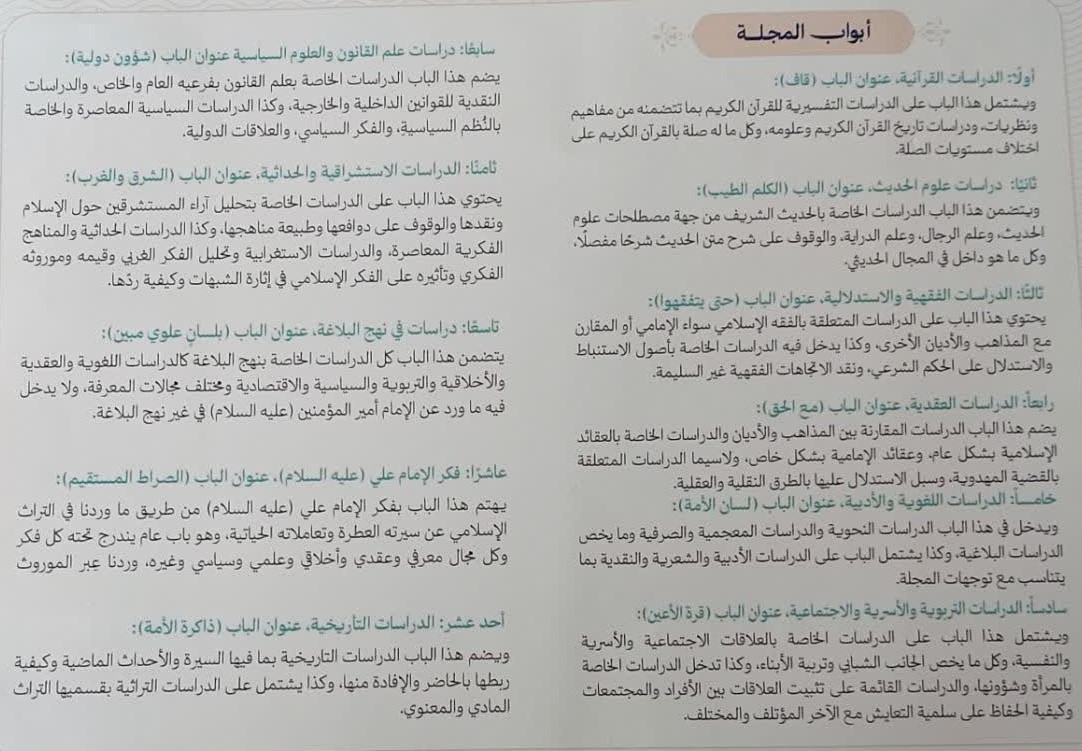 أبواب المجلة
أولًا: الدراسات القرآنية، عنوان الباب (قاف):
ويشتمل هذا الباب على الدراسات التفسيرية للقرآن الكريم بما تتضمنه من مفاهيم
ونظريات، ودراسات تاريخ القرآن الكريم وعلومه، وكل ما له صلة بالقرآن الكريم على
اختلاف مستويات الصلة.
ثانيًا: دراسات علوم الحديث، عنوان الباب (الكلم الطيب):
ويتضمن هذا الباب الدراسات الخاصة بالحديث الشريف من جهة مصطلحات علوم
الحديث، وعلم الرجال، وعلم الدراية، والوقوف على شرح متن الحديث شرحًا مفصلًا،
وكل ما هو داخل في المجال الحديثي.
ثالثًا: الدراسات الفقهية والاستدلالية، عنوان الباب (حتى يتفقهوا):
يحتوي هذا الباب على الدراسات المتعلقة بالفقه الإسلامي سواء الإمامي أو المقارن
مع المذاهب والأديان الأخرى، وكذا يدخل فيه الدراسات الخاصة بأصول الاستنباط
والاستدلال على الحكم الشرعي، ونقد الاتجاهات الفقهية غير السليمة.
رابعاً: الدراسات العقدية، عنوان الباب (مع الحق):
يضم هذا الباب الدراسات المقارنة بين المذاهب والأديان والدراسات الخاصة بالعقائد
الإسلامية بشكل عام، وعقائد الإمامية بشكل خاص، ولاسيما الدراسات المتعلقة
بالقضية المهدوية، وسبل الاستدلال عليها بالطرق النقلية والعقلية.
خامساً: الدراسات اللغوية والأدبية، عنوان الباب (لسان الأمة):
ويدخل في هذا الباب الدراسات النحوية والدراسات المعجمية والصرفية وما يخص
الدراسات البلاغية، وكذا يشتمل الباب على الدراسات الأدبية والشعرية والنقدية بما
يتناسب مع توجهات المجلة.
سادساً: الدراسات التربوية والأسرية والاجتماعية، عنوان الباب (قرة الأعين):
ويشتمل هذا الباب على الدراسات الخاصة بالعلاقات الاجتماعية والأسرية
والنفسية، وكل ما يخص الجانب الشبابي وتربية الأبناء، وكذا تدخل الدراسات الخاصة
بالمرأة وشؤونها، والدراسات القائمة على تثبيت العلاقات بين الأفراد والمجتمعات
وكيفية الحفاظ على سلمية التعايش مع الآخر المؤتلف والمختلف.
سابعًا: دراسات علم القانون والعلوم السياسية عنوان الباب (شؤون دولية):
يضم هذا الباب الدراسات الخاصة بعلم القانون بفرعيه العام والخاص، والدراسات
النقدية للقوانين الداخلية والخارجية، وكذا الدراسات السياسية المعاصرة والخاصة
بالنُظم السياسية، والفكر السياسي، والعلاقات الدولية.
ثامنًا: الدراسات الاستشراقية والحداثية، عنوان الباب (الشرق والغرب):
يحتوي هذا الباب على الدراسات الخاصة بتحليل آراء المستشرقين حول الإسلام
ونقدها والوقوف على دوافعها وطبيعة مناهجها، وكذا الدراسات الحداثية والمناهج
الفكرية المعاصرة، والدراسات الاستغرابية وتحليل الفكر الغربي وقيمه وموروثه
الفكري وتأثيره على الفكر الإسلامي في إثارة الشبهات وكيفية ردّها.
تاسعًا: دراسات في نهج البلاغة، عنوان الباب (بلسانٍ علوي مبين):
يتضمن هذا الباب كل الدراسات الخاصة بنهج البلاغة كالدراسات اللغوية والعقدية
والأخلاقية والتربوية والسياسية والاقتصادية ومختلف مجالات المعرفة، ولا يدخل
فيه ما ورد عن الإمام أمير المؤمنين (عليه السلام) في غير نهج البلاغة.
عاشرًا: فكر الإمام علي (عليه السلام)، عنوان الباب (الصراط المستقيم):
يهتم هذا الباب بفكر الإمام علي (عليه السلام) من طريق ما وردنا في التراث
الإسلامي عن سيرته العطرة وتعاملاته الحياتية، وهو باب عام يندرج تحته كل فكر
وكل مجال معرفي وعقدي وأخلاقي وعلمي وسياسي وغيره، وردنا عِبر الموروث
أحد عشر: الدراسات التأريخية، عنوان الباب (ذاكرة الأمة):
ويضم هذا الباب الدراسات التاريخية بما فيها السيرة والأحداث الماضية وكيفية
ربطها بالحاضر والإفادة منها، وكذا يشتمل على الدراسات التراثية بقسميها التراث
المادي والمعنوي.